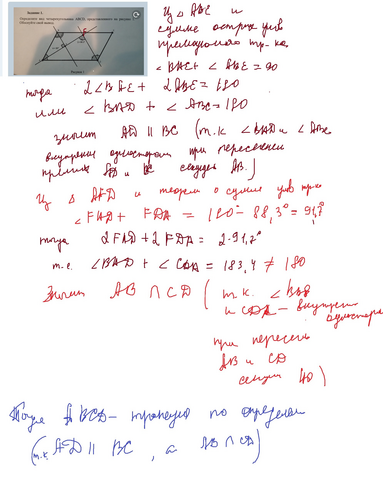 Задание 3.
Определите вид четырехугольника ABCD, представленного на рисунке.
Обоснуйте свой ответ.
Из △ ABE и
сумме острых углов
прямоугольного тр-ка
∠BAE + ∠ABE = 90
тогда 2∠BAE + 2ABE = 180
или ∠BAD + ∠ABC = 180
значит AD || BC (т.к. ∠BAD и ∠ABC
внутренние односторон при пересечении
прямых AD и BC секущей AB.)
Из △ AFD и теореме о сумме углов тр-ка
∠FAD + FDA = 180° - 88,3° = 91,7°
тогда 2FAD + 2FDA = 2·91,7°
т.е. ∠BAD + ∠CDA = 183,4 ≠ 180
Значит AB ∩ CD (т.к. ∠BAD
и CDA - внутрен
односторон
при пересеч
AB и CD
секущ AD)
Тогда ABCD - трапеция по определен
(т.к. AD || BC, а AB ∩ CD)